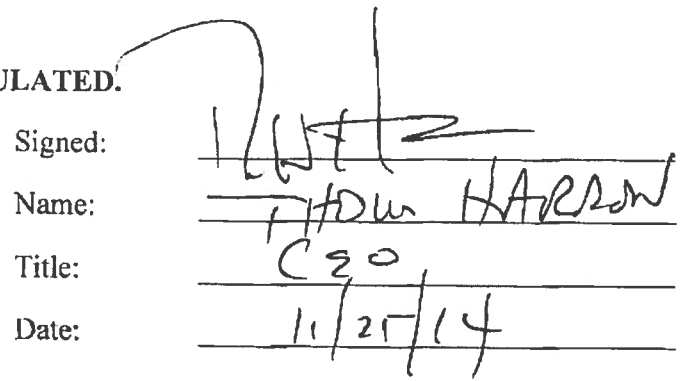 ULATED.
Signed:
Name: THOM HARROW
Title: CEO
Date: 11/25/14